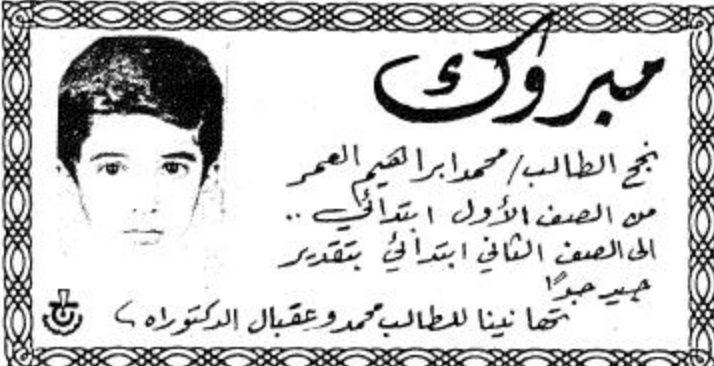 مبروك
نجح الطالب/محمد ابراهيم العمر
من الصف الأول ابتدائي ..
الى الصف الثاني ابتدائي بتقدير
جيد جداً
تهانينا للطالب محمد وعقبال الدكتوراه